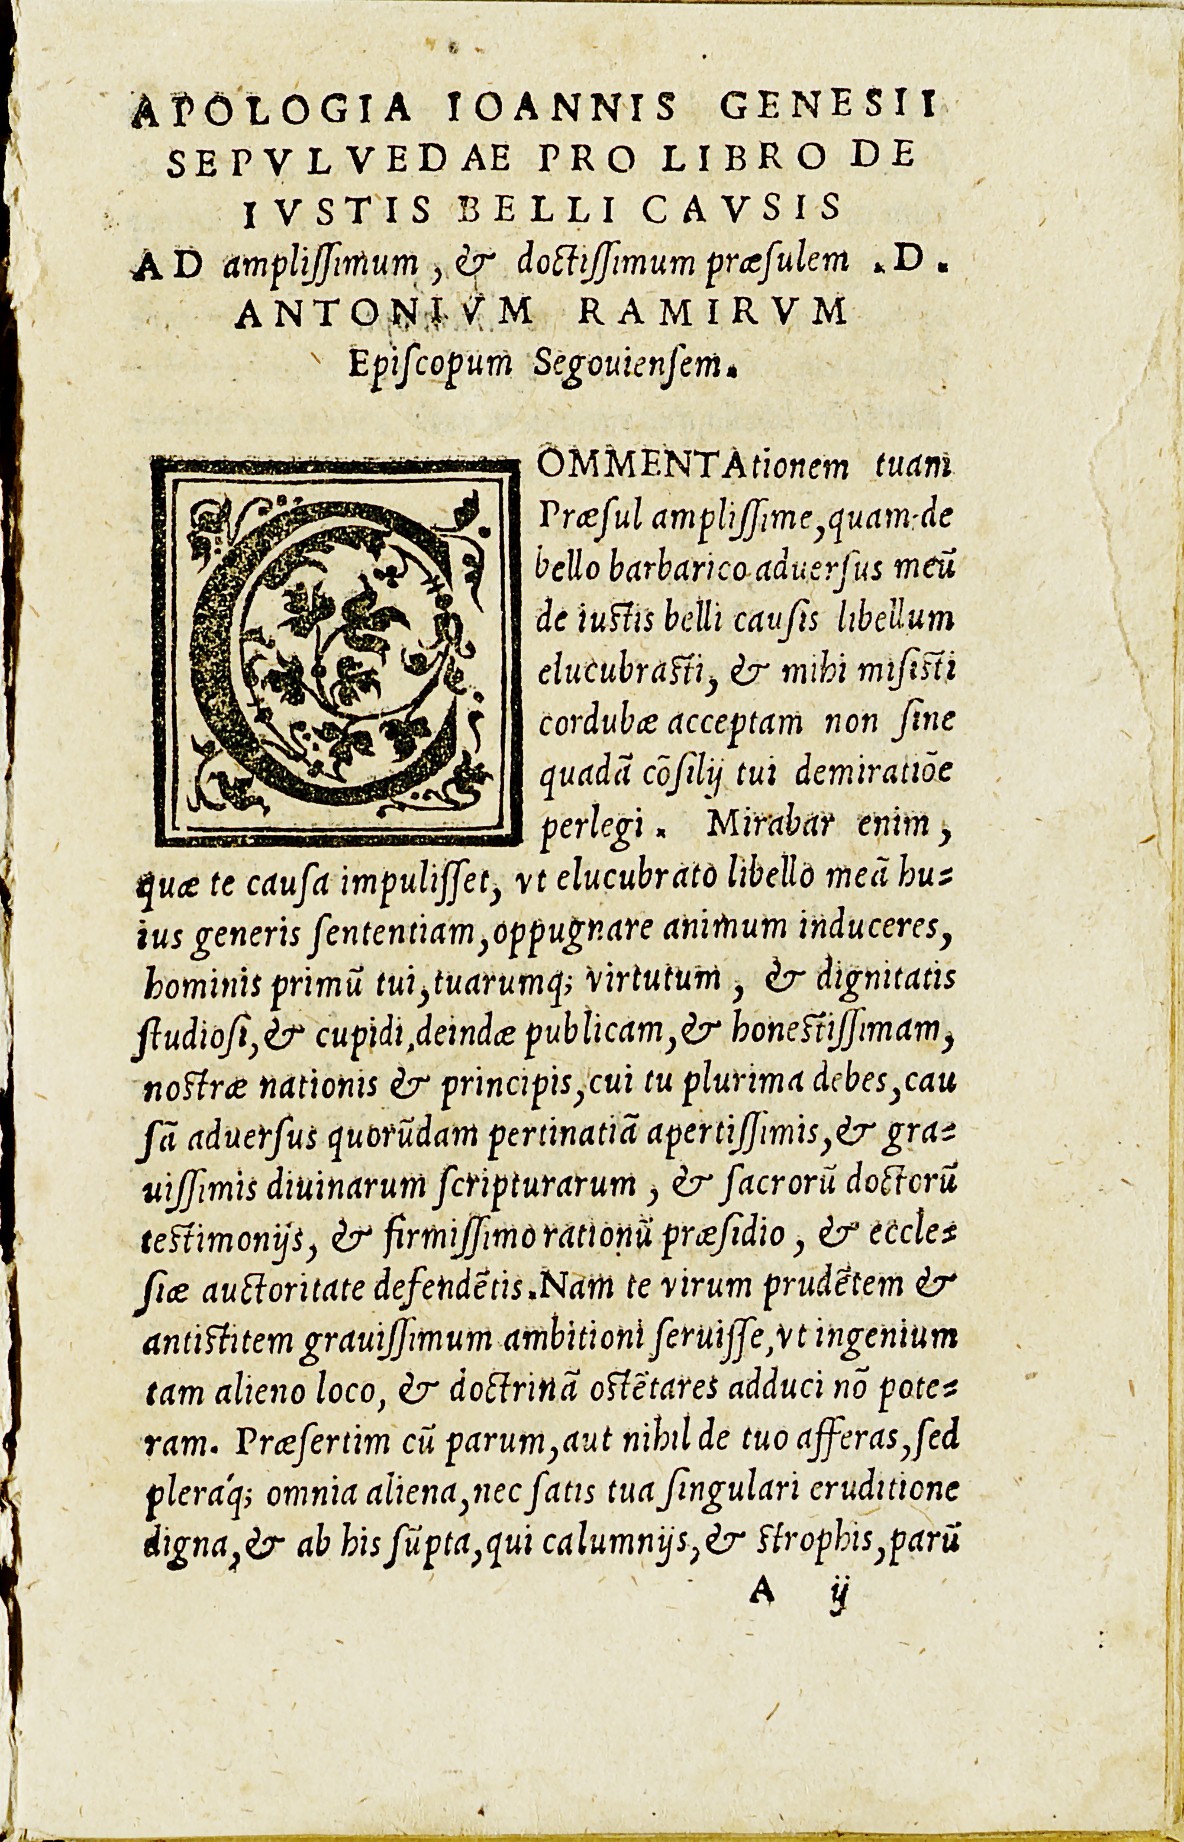 APOLOGIA IOANNIS GENESII
SEPVLVEDAE PRO LIBRO DE
IVSTIS BELLI CAVSIS
AD ampliſſimum, & doctiſſimum præſulem .D.
ANTONIVM RAMIRVM
Epiſcopum Segouienſem.
COMMENTAtionem tuam
Præſul ampliſſime, quam de
bello barbarico aduerſus meũ
de iuſtis belli cauſis libellum
elucubraſti, & mihi miſiſti
cordubæ acceptam non ſine
quadã cõſilij tui demiratiõe
perlegi. Mirabar enim,
quæ te cauſa impuliſſet, vt elucubrato libello meã hu-
ius generis ſententiam, oppugnare animum induceres,
hominis primũ tui, tuarumq; virtutum, & dignitatis
ſtudioſi, & cupidi, deindæ publicam, & honeſtiſſimam,
noſtræ nationis & principis, cui tu plurima debes, cau
ſã aduerſus quorũdam pertinatiã apertiſſimis, & gra-
uiſſimis diuinarum ſcripturarum, & ſacrorũ doctorũ
teſtimonijs, & firmiſſimo rationũ præſidio, & eccle-
ſiæ auctoritate defendẽtis. Nam te virum prudẽtem &
antiſtitem grauiſſimum ambitioni ſeruiſſe, vt ingenium
tam alieno loco, & doctrinã oſtẽtares adduci nõ pote-
ram. Præſertim cũ parum, aut nihil de tuo afferas, ſed
pleráq; omnia aliena, nec ſatis tua ſingulari eruditione
digna, & ab his ſũpta, qui calumnijs, & ſtrophis, parũ
A ij